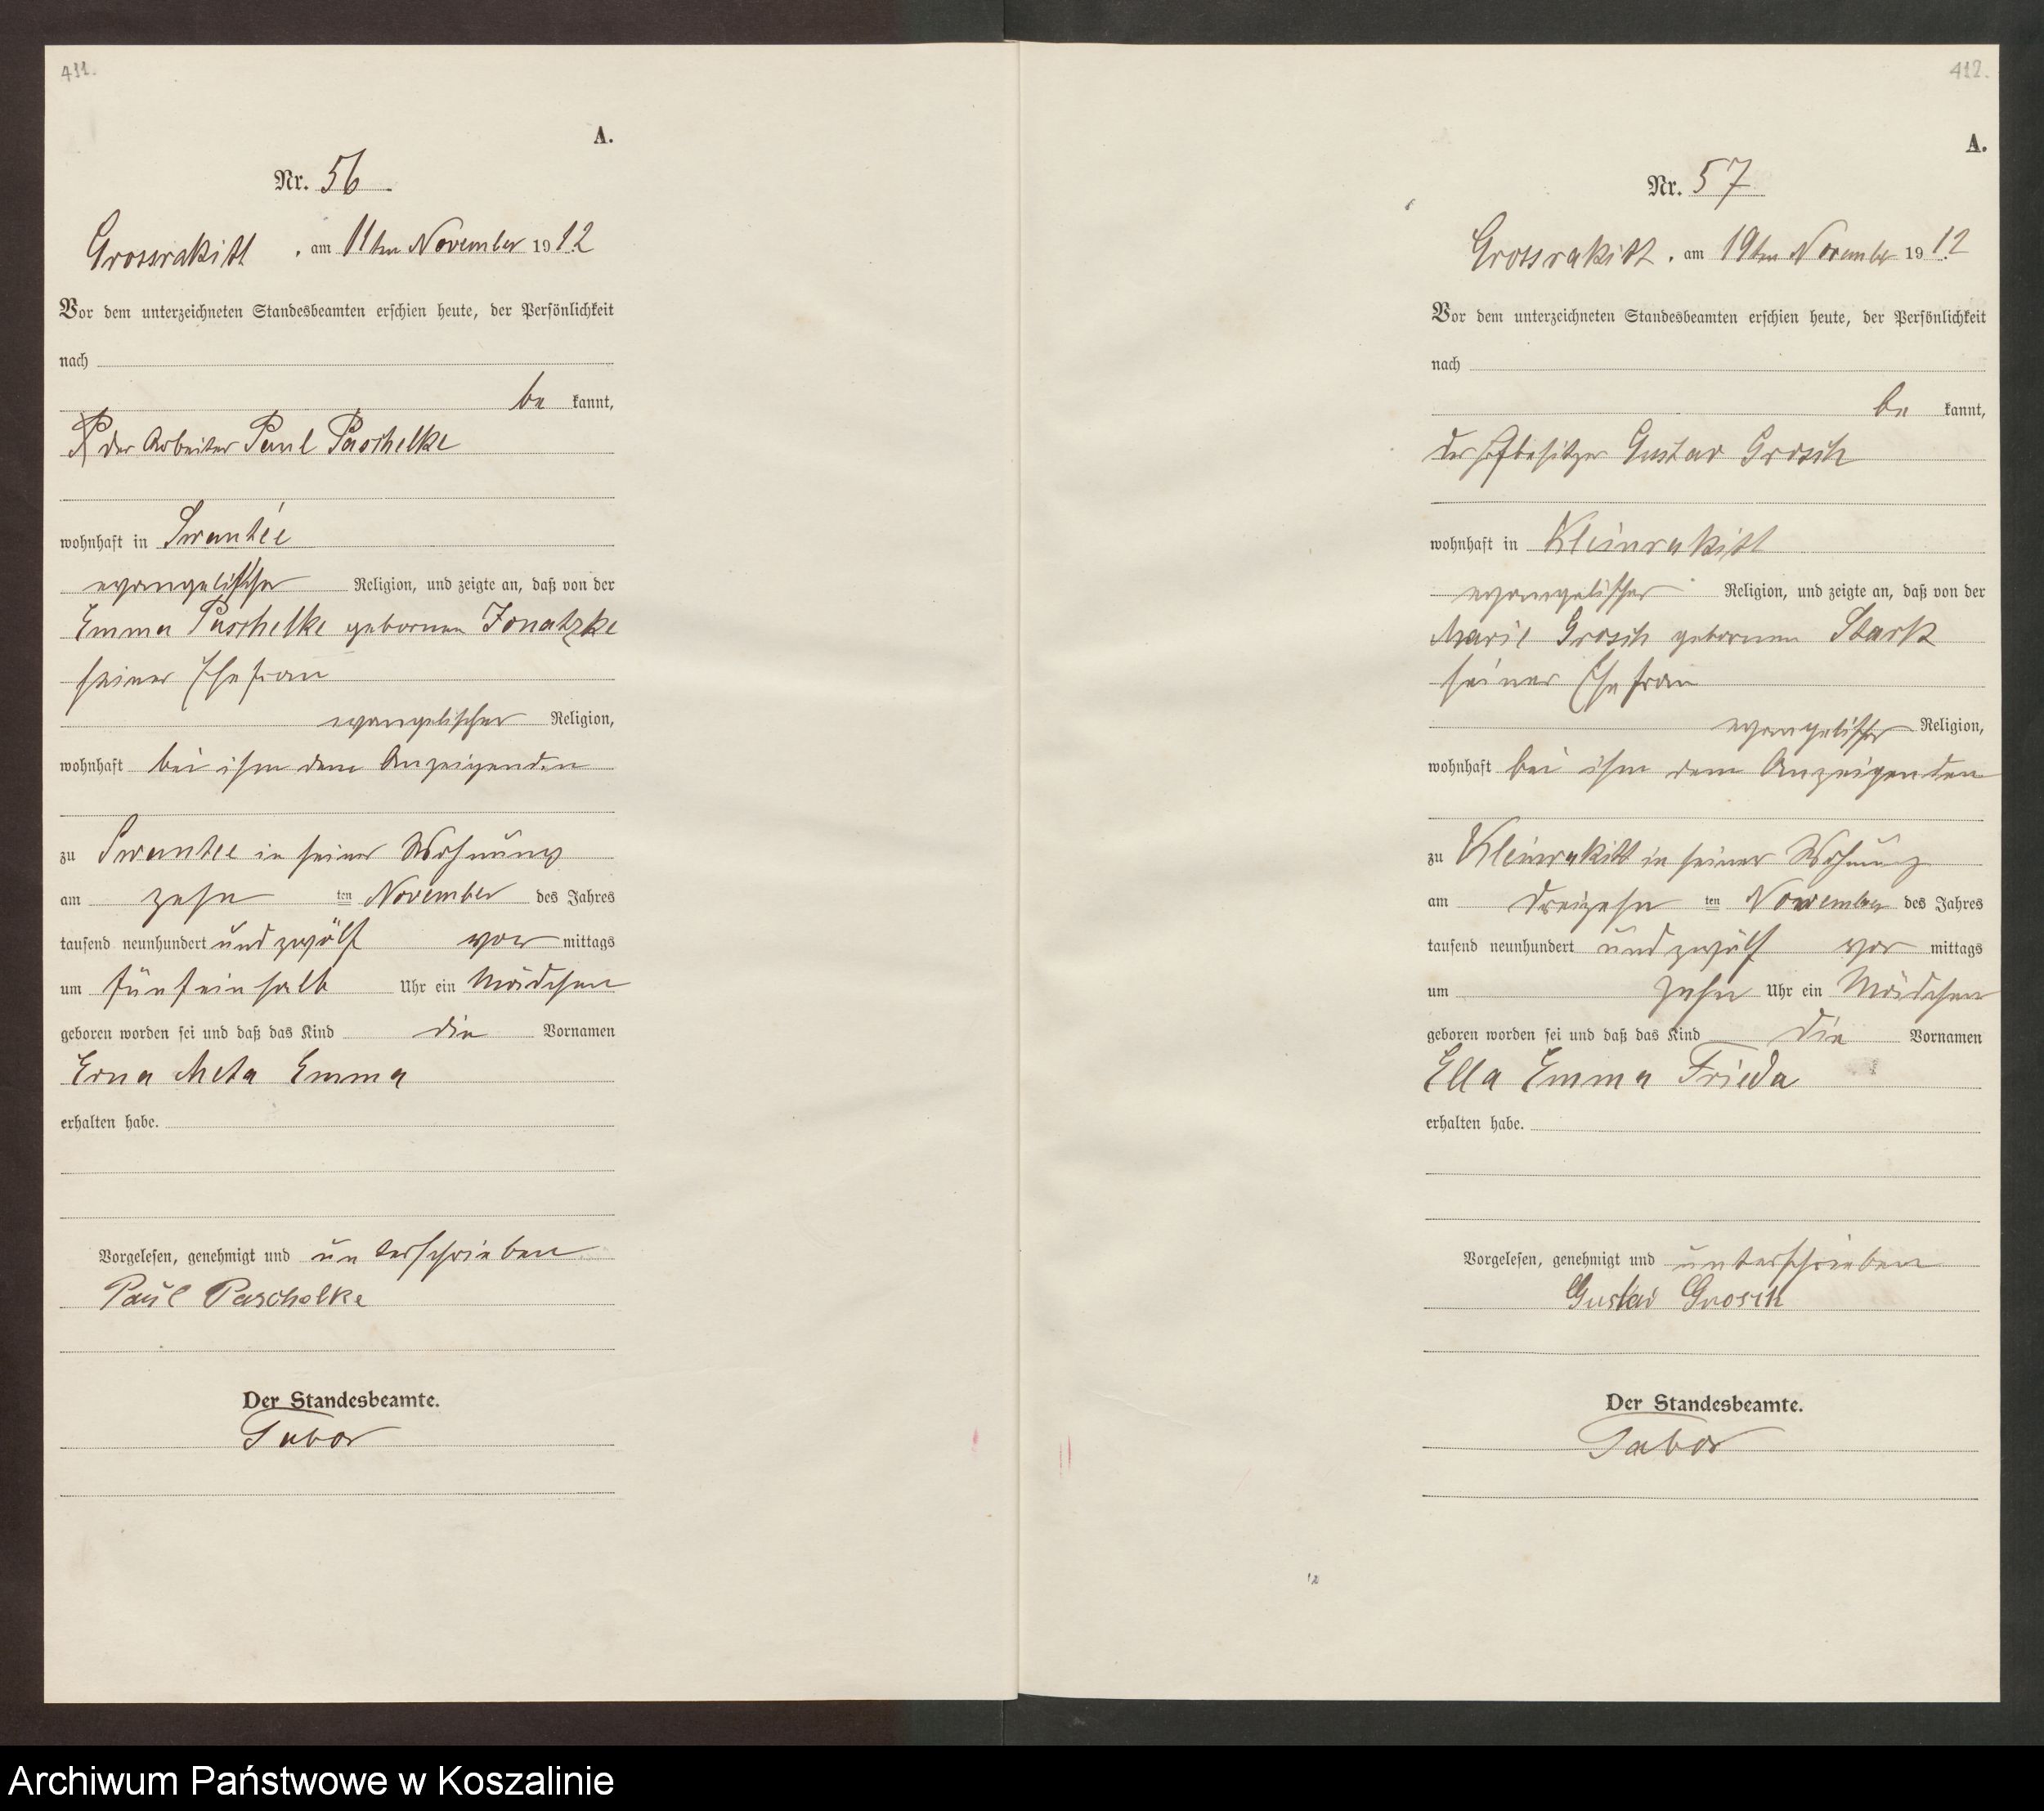 411.
A.
Nr. 56.
Grossrakitt, am 11ten November 1912
Vor dem unterzeichneten Standesbeamten erschien heute, der Persönlichkeit
nach
be kannt,
der Arbeiter Paul Paschelke
wohnhaft in Swantee
evangelischer Religion, und zeigte an, daß von der
Emma Paschelke geborenen Jonatzke
seiner Ehefrau
evangelischer Religion,
wohnhaft bei ihm dem Anzeigenden
zu Swantee in seiner Wohnung
am zehn ten November des Jahres
tausend neunhundert und zwölf vor mittags
um fünfeinhalb Uhr ein Mädchen
geboren worden sei und daß das Kind die Vornamen
Erna Meta Emma
erhalten habe.
Vorgelesen, genehmigt und unterschrieben
Paul Paschelke
Der Standesbeamte.
Tabor
412.
A.
Nr. 57
Grossrakitt, am 19ten November 1912
Vor dem unterzeichneten Standesbeamten erschien heute, der Persönlichkeit
nach
be kannt,
der Hofbesitzer Gustav Grosch
wohnhaft in Kleinrakitt
evangelischer Religion, und zeigte an, daß von der
Marie Grosch geborenen Stark
seiner Ehefrau
evangelischer Religion,
wohnhaft bei ihm dem Anzeigenden
zu Kleinrakitt in seiner Wohnung
am dreizehn ten November des Jahres
tausend neunhundert und zwölf vor mittags
um zehn Uhr ein Mädchen
geboren worden sei und daß das Kind die Vornamen
Ella Emma Frieda
erhalten habe.
Vorgelesen, genehmigt und unterschrieben
Gustav Grosch
Der Standesbeamte.
Tabor
12
Archiwum Państwowe w Koszalinie